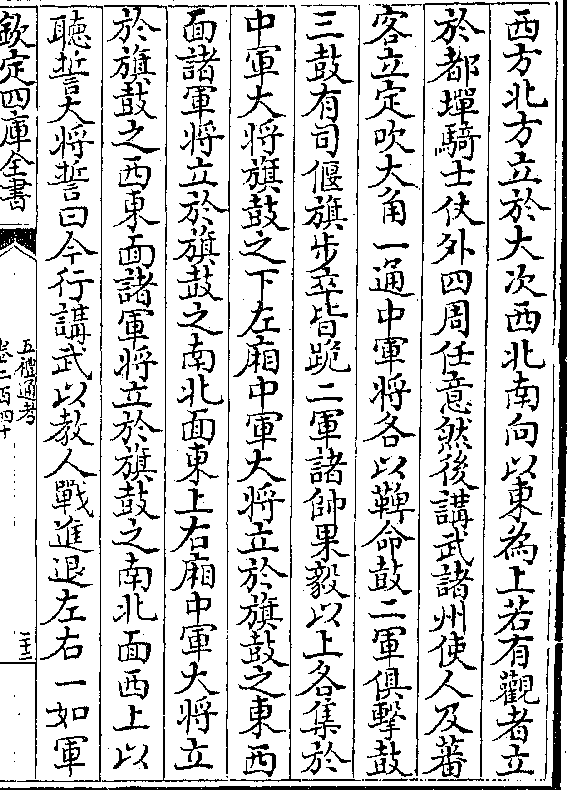 西方北方立於大次西北南向以東為上若有觀者立
於都墠騎士仗外四周任意然後講武諸州使人及蕃
客立定吹大角一通中軍將各以鞞命鼓二軍俱擊鼓
三鼓有司偃旗步卒皆跪二軍諸帥果毅以上各集於
中軍大將旗鼓之下左廂中軍大將立於旗鼓之東西
面諸軍將立於旗鼓之南北面東上右廂中軍大將立
於旗鼓之西東面諸軍將立於旗鼓之南北面西上以
聽誓大將誓曰今行講武以教人戰進退左右一如軍
欽定四庫全書
五禮通考
卷二百四十
三十二